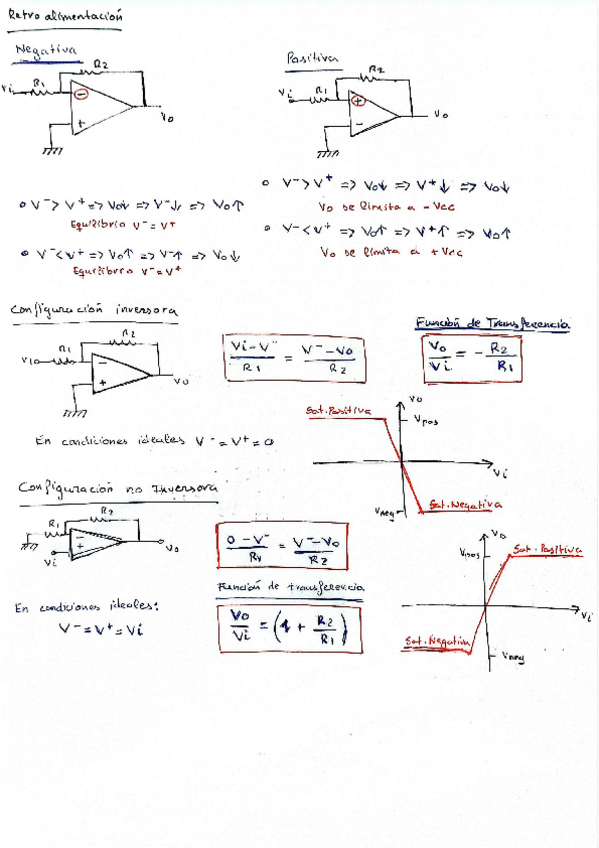 Retroalimentación
Negativa
Positiva
R2
R1
Vi
−
+
Vo
R2
R1
Vi
+
−
Vo
o V⁻ > V⁺ => Vo↓ => V⁻↓ => Vo↑
Equilibrio V⁻ = V⁺
o V⁻ < V⁺ => Vo↑ => V⁻↑ => Vo↓
Equilibrio V⁻ = V⁺
o V⁻ > V⁺ => Vo↓ => V⁺↓ => Vo↓
Vo se limita a -Vcc
o V⁻ < V⁺ => Vo↑ => V⁺↑ => Vo↑
Vo se limita a +Vcc
Configuración inversora
R2
R1
Vi
−
+
Vo
(Vi - V⁻)/R1 = (V⁻ - Vo)/R2
Función de Transferencia
Vo/Vi = - R2/R1
En condiciones ideales V⁻ = V⁺ = 0
Vo
Sat. Positiva
Vpos
Vi
Vneg
Sat. Negativa
Configuración no Inversora
R2
R1
−
+
Vi
Vo
(0 - V⁻)/R1 = (V⁻ - Vo)/R2
Función de transferencia
Vo/Vi = (1 + R2/R1)
En condiciones ideales:
V⁻ = V⁺ = Vi
Vo
Vpos
Sat. Positiva
Vi
Sat. Negativa
Vneg